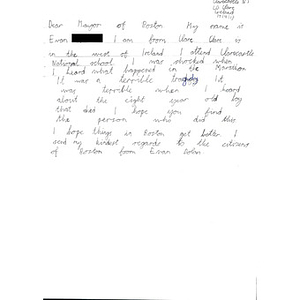 Clarecastle N.S
Co Clare
Ireland
Dear Mayor of Boston My name is
Ewan I am from Clare Clare is
in the west of Ireland I attend Clarecastle
National school I was shocked when
I heard what happened in the Marathon
It was a terrible tragedy it
was terrible when I heard
about the eight year old boy
that died I hope you find
the person who did this
I hope things in Boston get better I
send my kindest regards to the citizens
of Boston from Ewan